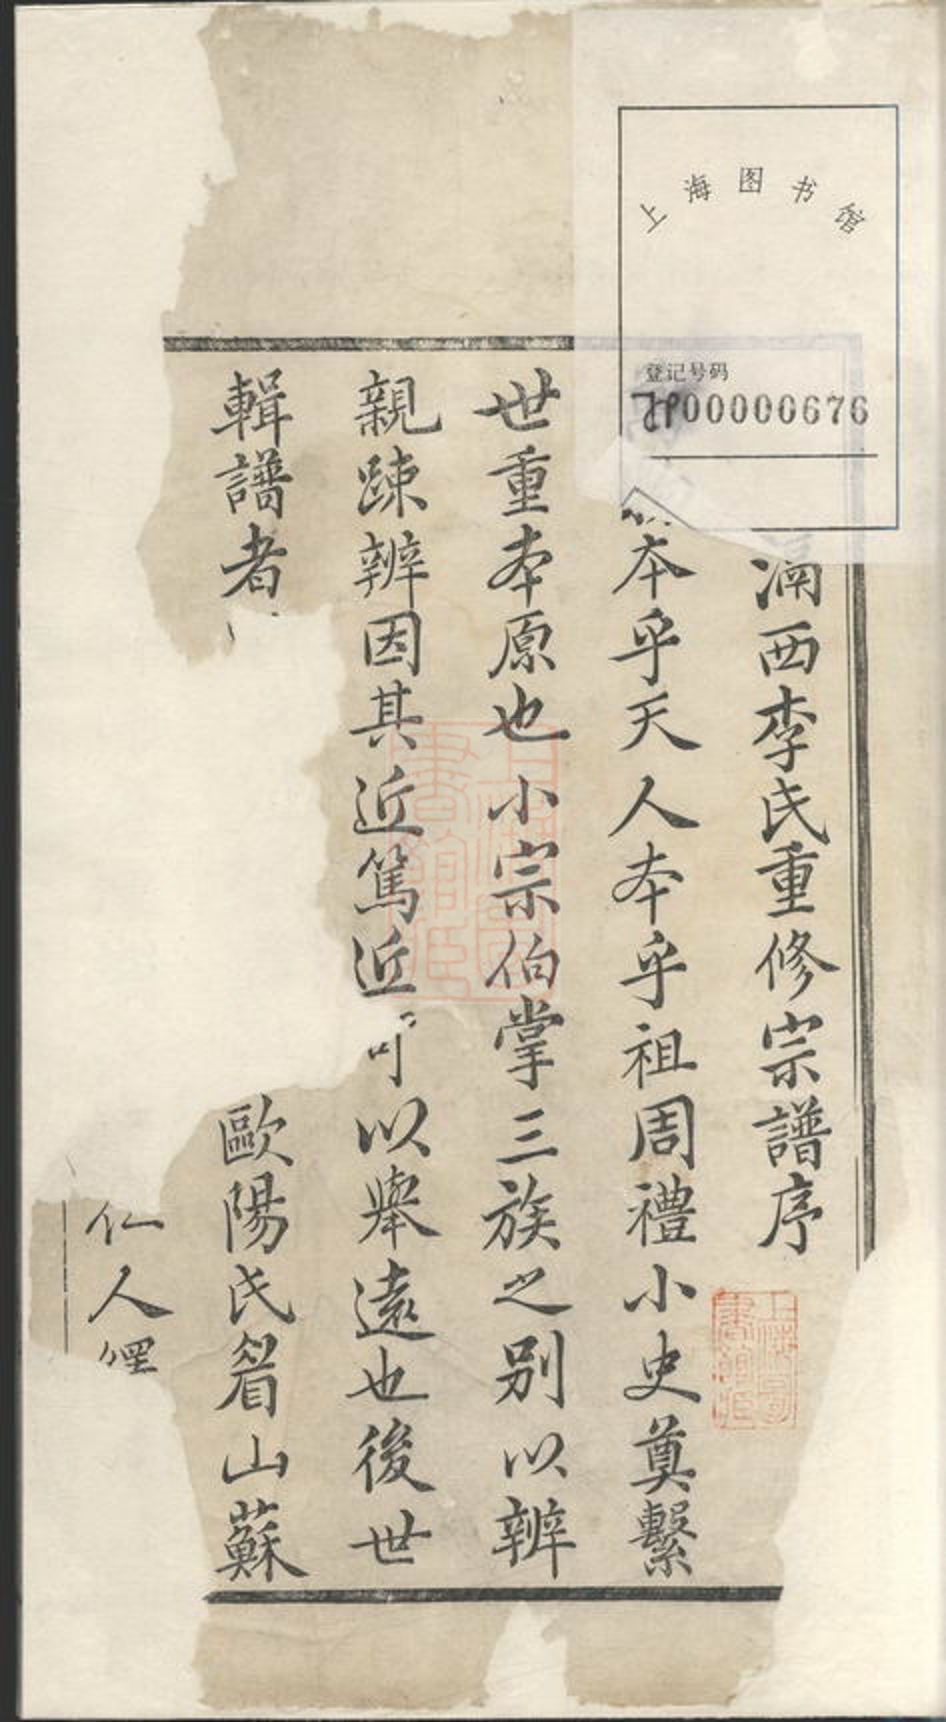 上海图书馆
登记号码
00000676
西李氏重修宗譜序
本乎天人本乎祖周禮小史奠繫
世重本原也小宗伯掌三族之别以辨
親踈辨因其近篤近可以舉遠也後世
輯譜者 歐陽氏眷山蘇
仁人
上海圖書館藏
上海圖書館藏